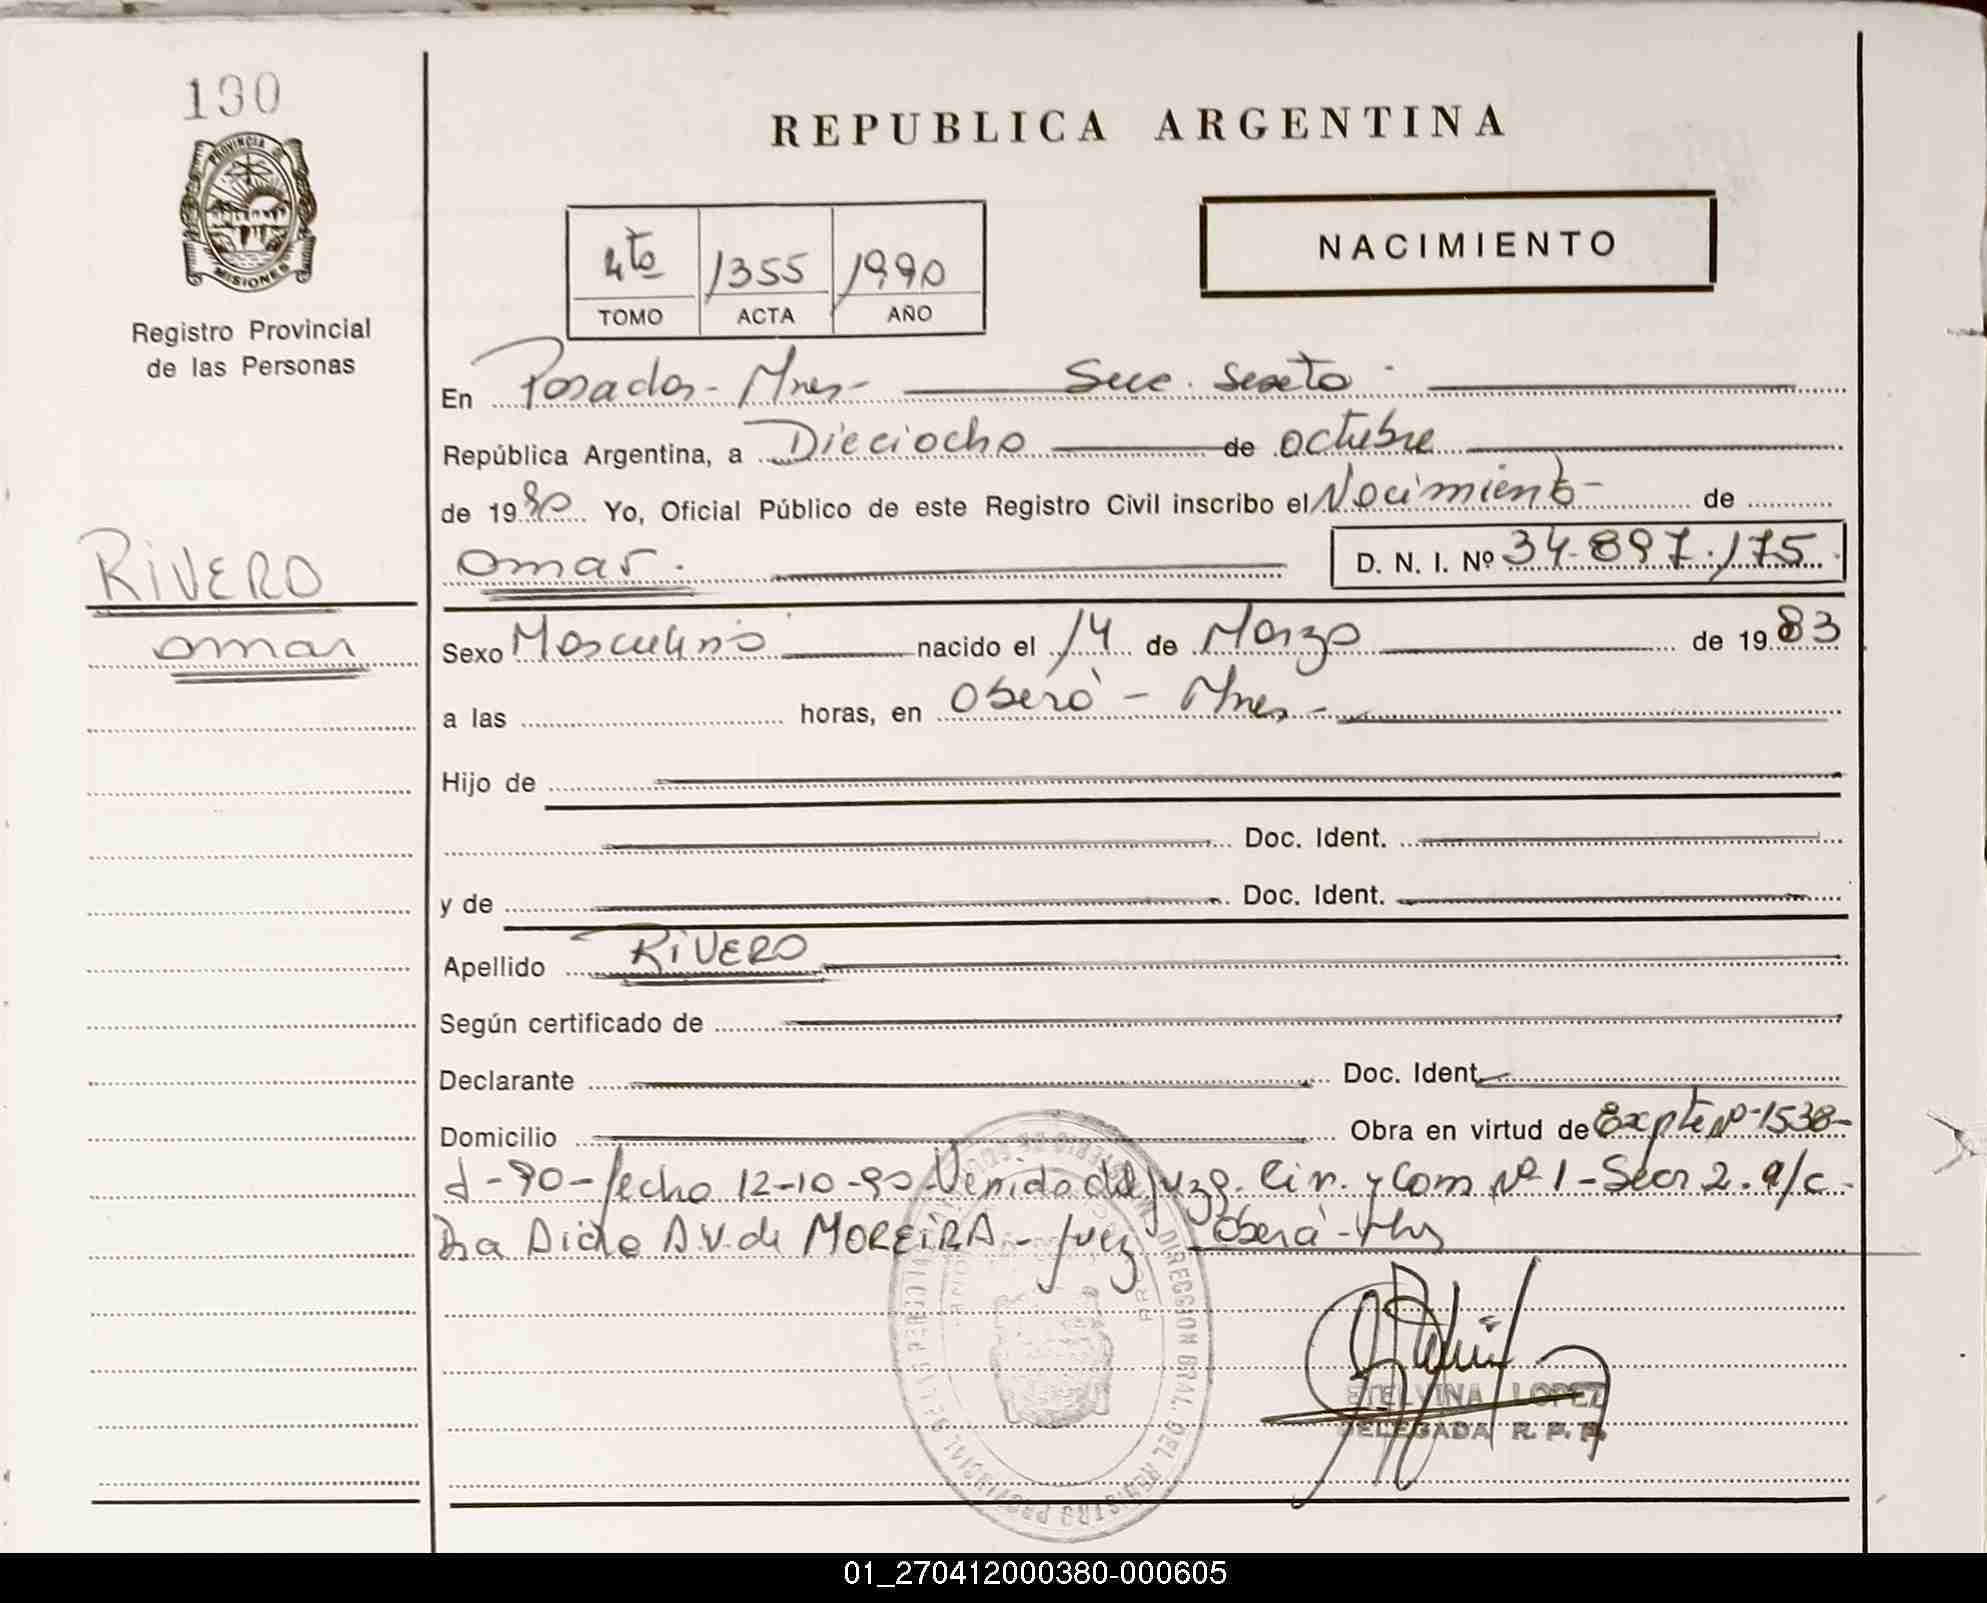 130
PROVINCIA DE
MISIONES
Registro Provincial
de las Personas
RIVERO
Omar
REPUBLICA ARGENTINA
NACIMIENTO
4to 1355 1990
TOMO ACTA AÑO
En Posadas - Mnes - Secc. Sexto
República Argentina, a Dieciocho de octubre
de 1990 Yo, Oficial Público de este Registro Civil inscribo el Nacimiento - de
Omar. D. N. I. Nº 34.897.175
Sexo Masculino nacido el 14 de Marzo de 1983
a las horas, en Oberá - Mnes -
Hijo de
Doc. Ident.
y de Doc. Ident.
Apellido RIVERO
Según certificado de
Declarante Doc. Ident.
Domicilio Obra en virtud de Expte Nº 1538-
d - 90 - fecha 12-10-90 Venido del Juzg. Civ. y Com Nº 1 - Secr 2. a/c
Dra A.V. de MOREIRA - Juez Oberá - Mns
DIRECCION GRAL. DEL REGISTRO PROVINCIAL DE LAS PERSONAS
ETELVINA LOPEZ
DELEGADA R. P. P.
01_270412000380-000605